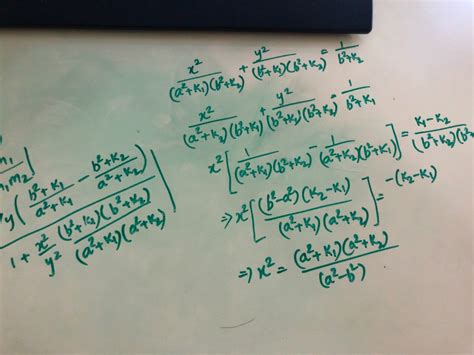 x²/((a²+k₁)(b²+k₂)) + y²/((b²+k₁)(b²+k₂)) = 1/(b²+k₂)
x²/((a²+k₂)(b²+k₁)) + y²/((b²+k₁)(b²+k₂)) = 1/(b²+k₁)
x²[1/((a²+k₁)(b²+k₂)) - 1/((a²+k₂)(b²+k₁))] = (k₁-k₂)/((b²+k₂)(b²
⇒ x²[(b²-a²)(k₂-k₁)/((a²+k₁)(a²+k₂))] = -(k₂-k₁)
⇒ x² = (a²+k₁)(a²+k₂)/(a²-b²)
m₁m₂|
y((b²+k₁)/(a²+k₁) - (b²+k₂)/(a²+k₂))
1 + x²/y² (b²+k₁)(b²+k₂)/((a²+k₁)(a²+k₂))|